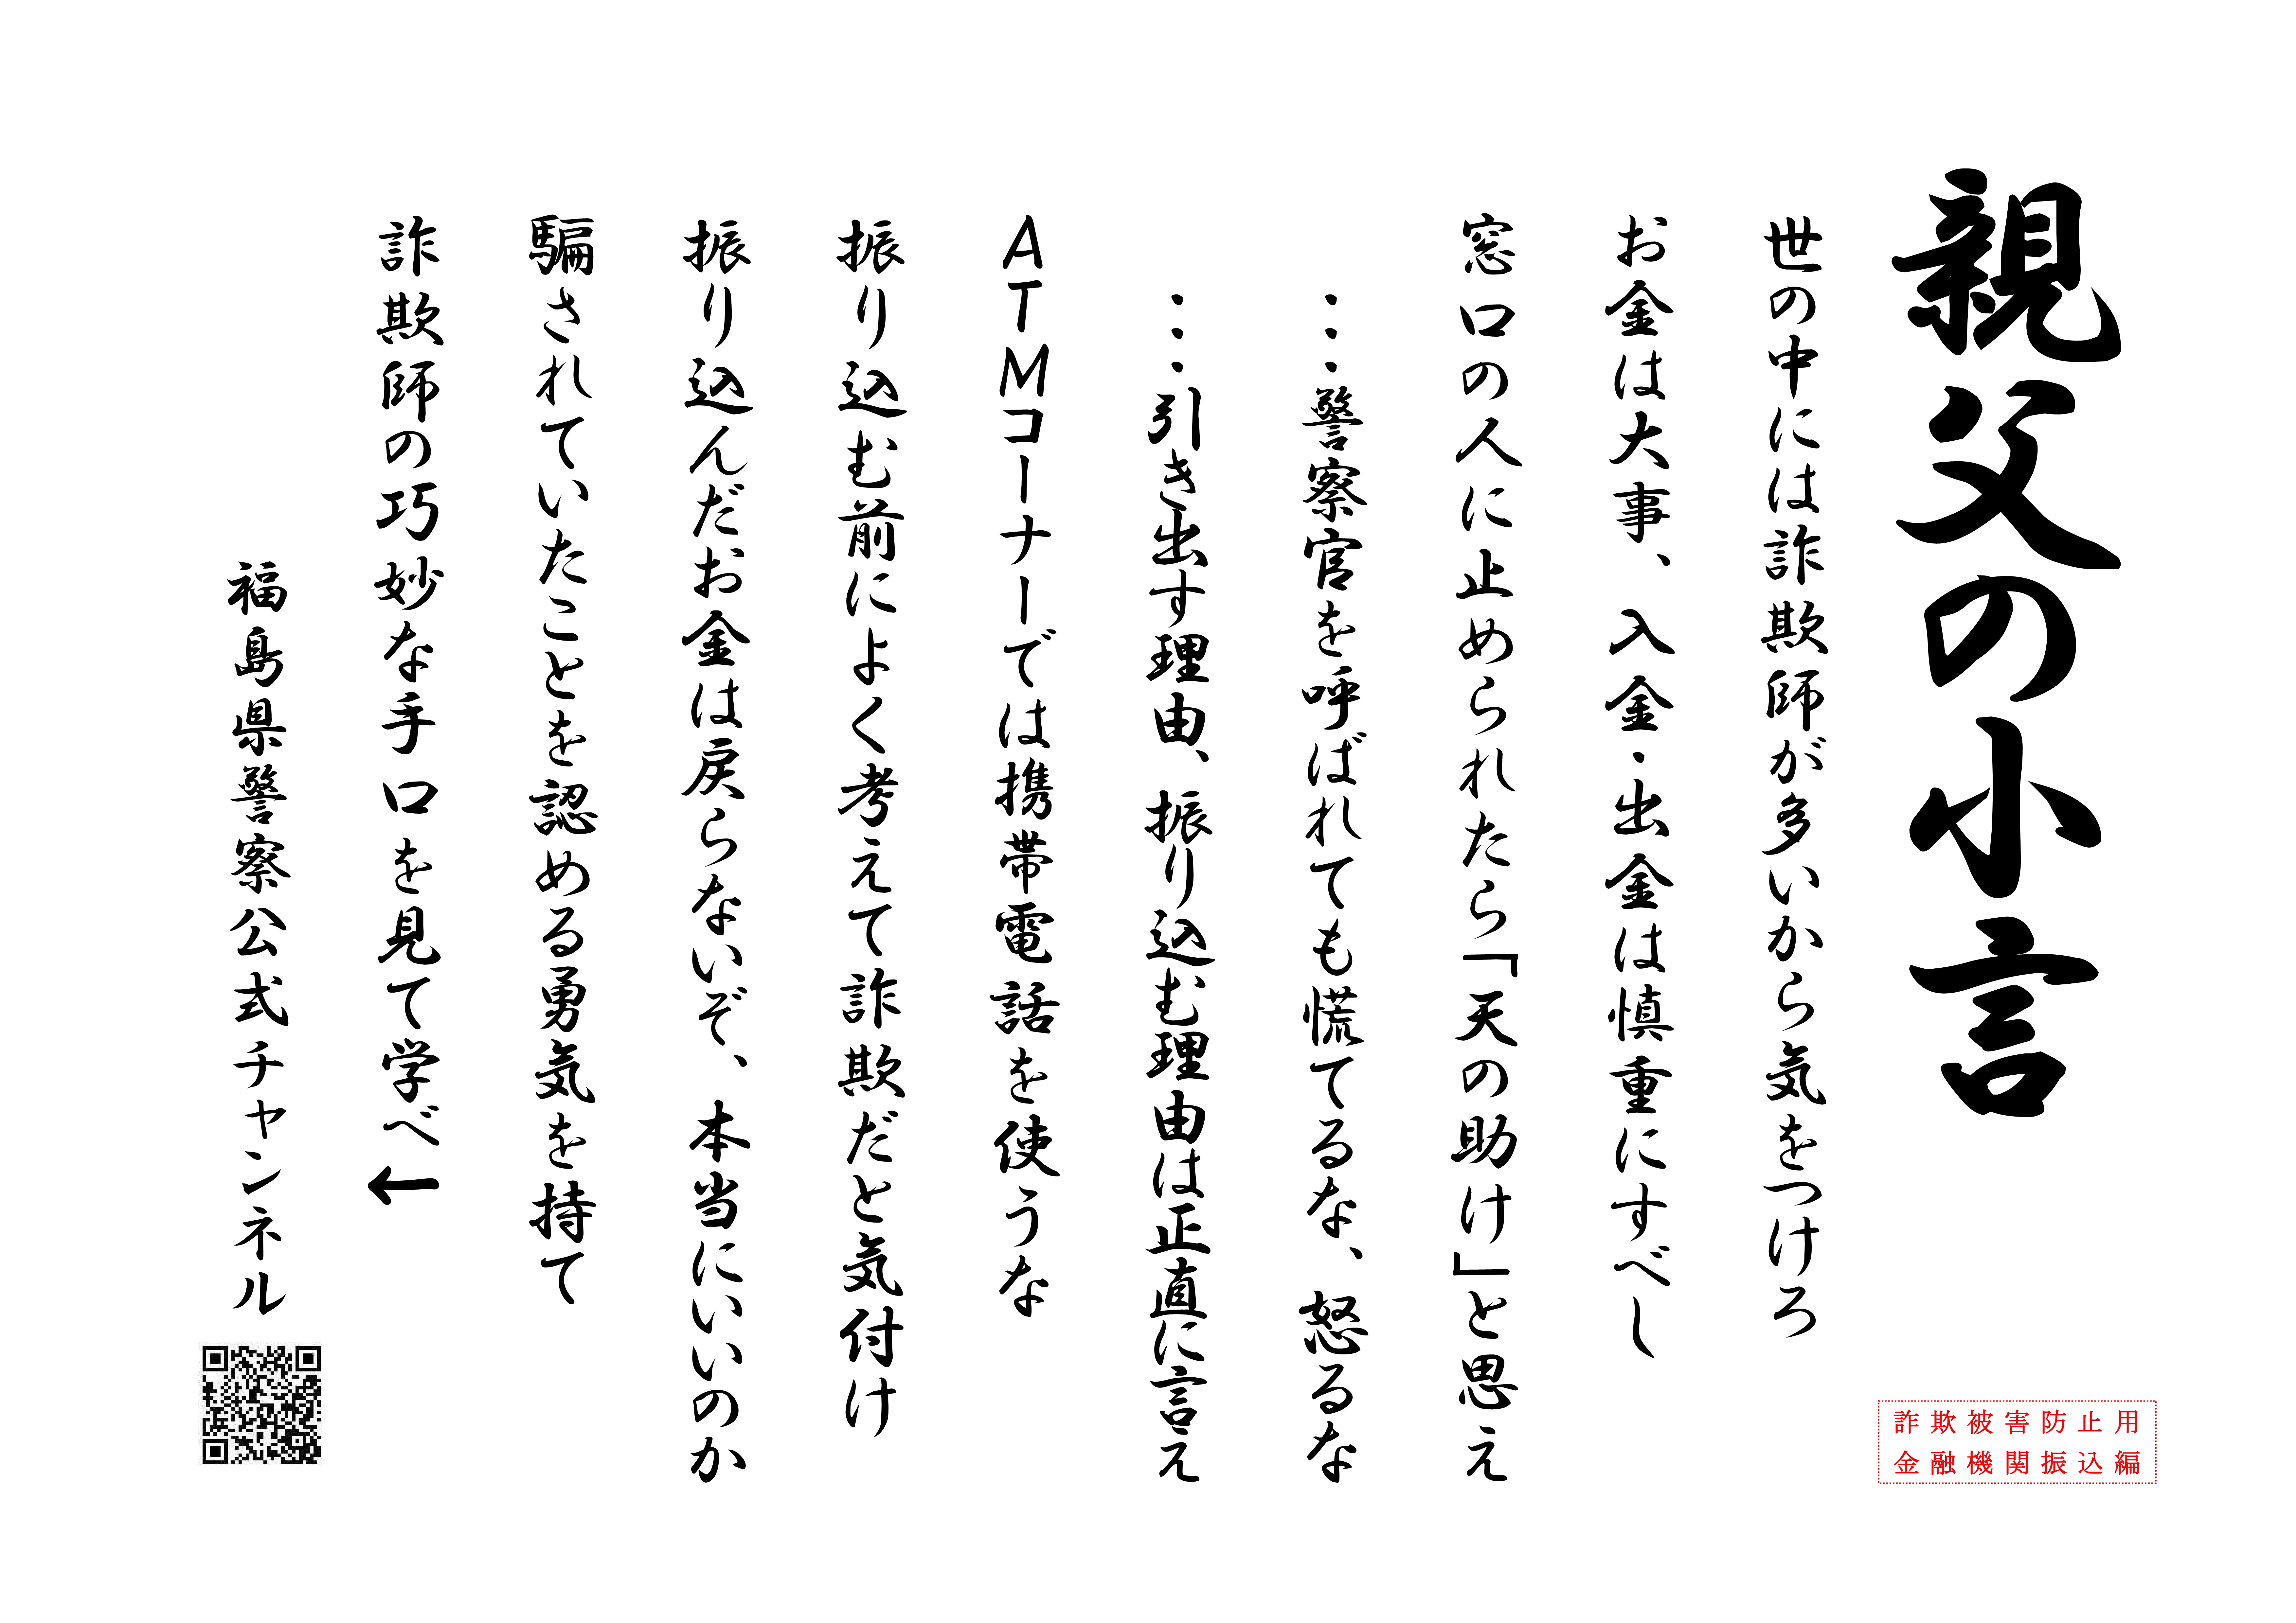 親父の小言
世の中には詐欺師が多いから気をつけろ
お金は大事、入金・出金は慎重にすべし
窓口の人に止められたら「天の助け」と思え
…警察官を呼ばれても慌てるな、怒るな
…引き出す理由、振り込む理由は正直に言え
ATMコーナーでは携帯電話を使うな
振り込む前によく考えて詐欺だと気付け
振り込んだお金は戻らないぞ、本当にいいのか
騙されていたことを認める勇気を持て
詐欺師の巧妙な手口を見て学べ←
福島県警察公式チャンネル
詐欺被害防止用
金融機関振込編